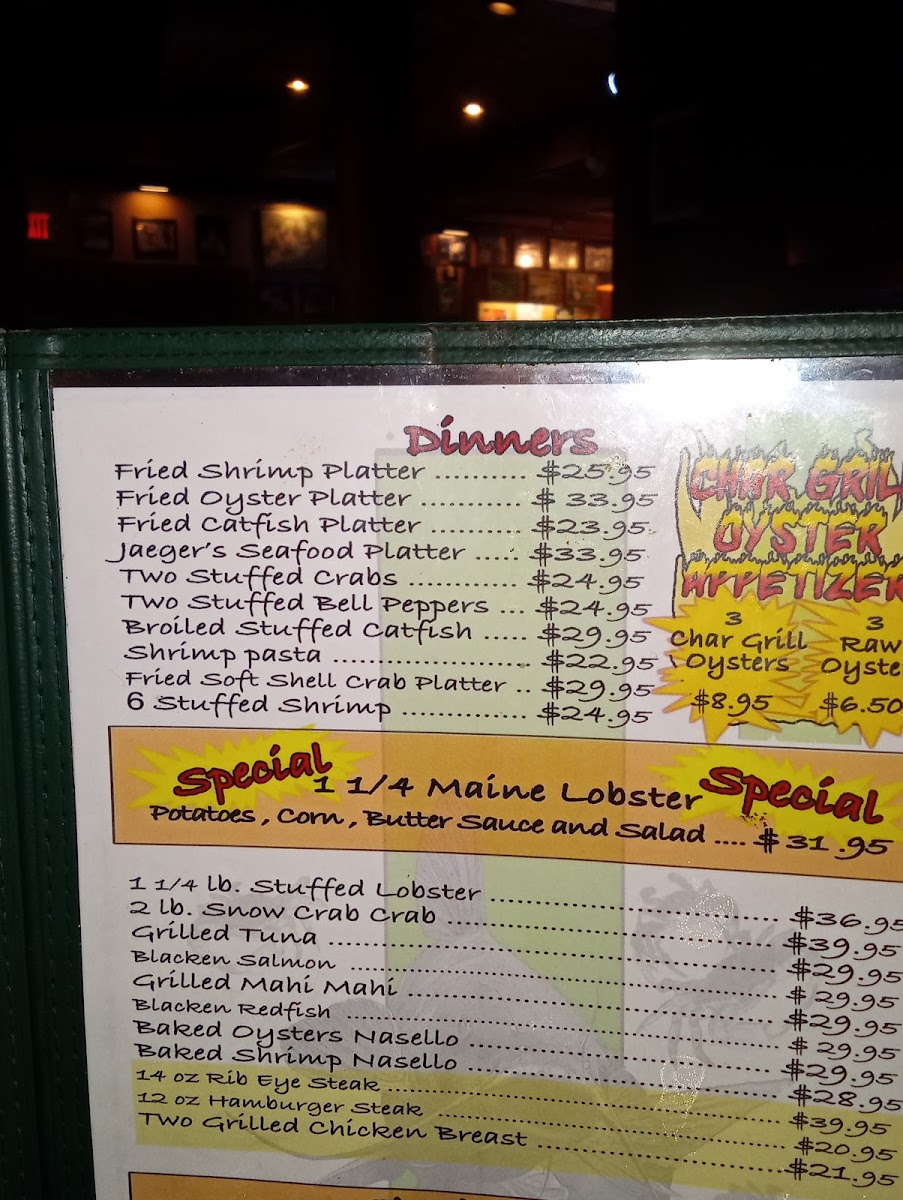 Dinners
Fried Shrimp Platter .......... $25.95
Fried Oyster Platter ........... $ 33.95
Fried Catfish Platter .......... $23.95
Jaeger's Seafood Platter ..... $33.95
Two Stuffed Crabs ............ $24.95
Two Stuffed Bell Peppers ... $24.95
Broiled Stuffed Catfish ..... $29.95
Shrimp pasta ..................... $22.95
Fried Soft Shell Crab Platter .. $29.95
6 Stuffed Shrimp ............... $24.95
CHAR GRIL
OYSTER
APPETIZER
3
Char Grill
Oysters
$8.95
3
Raw
Oyste
$6.50
Special
1 1/4 Maine Lobster
Special
Potatoes, Corn, Butter Sauce and Salad .... $ 31.95
1 1/4 lb. Stuffed Lobster ................................ $36.95
2 lb. Snow Crab Crab ..................................... $39.95
Grilled Tuna .................................................. $29.95
Blacken Salmon ............................................. $ 29.95
Grilled Mahi Mahi ......................................... $29.95
Blacken Redfish ............................................. $ 29.95
Baked Oysters Nasello ................................... $29.95
Baked Shrimp Nasello .................................... $28.95
14 oz Rib Eye Steak ........................................ $39.95
12 oz Hamburger Steak .................................. $20.95
Two Grilled Chicken Breast ............................ $21.95